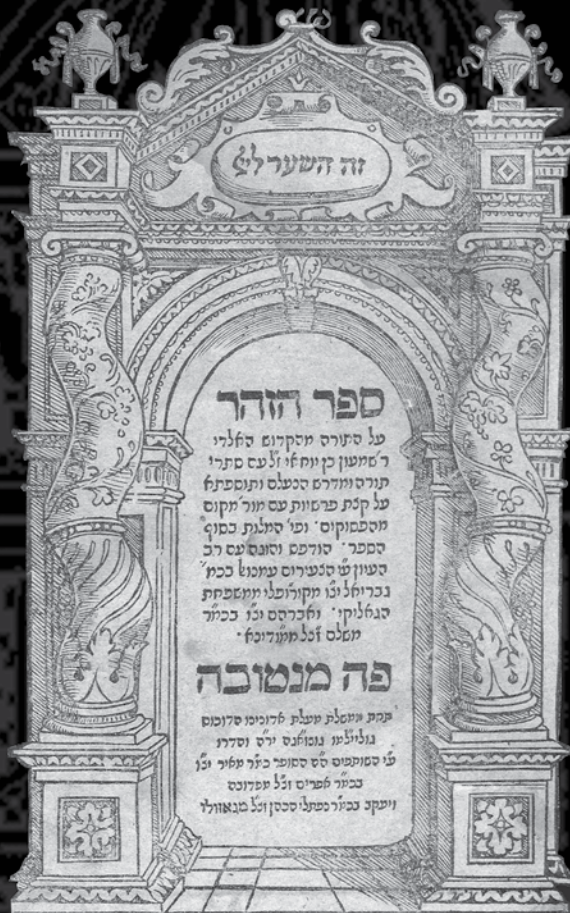 זה השער לי״י
ספר הזהר
על התורה מהקדוש האלדי
ר׳שמעון בן יוחאי ז״ל עם סתרי
תורה ומדרש הנעלם ותוספתא
על קצת פרשיות עם מור׳מקום
מהפסוקים׳ ופי׳ המלות בסוף
הספר׳ הודפס והוגה עם רב
העיון ע״י הצעירים עמנוא׳ בכמ׳
גבריאל יצ״ו מקורופלי ממשפחת
הגאליקי׳ ואברהם יצ״ו בכמ״ר
משלם ז״כל ממודינא׳
פה מנטובה
תחת ממשלת מעלת אדונינו הדוכוס
גוליילמו גונזאגה יר״ה וסדרו
ע״י השותפים ה״ה הסופר כמ״ר מאיר יצ״ו
בכמ״ר אפרים ז״כל מפדובה
ויעקב בכמ״ר נפתלי הכהן ז״כל מגאזולו